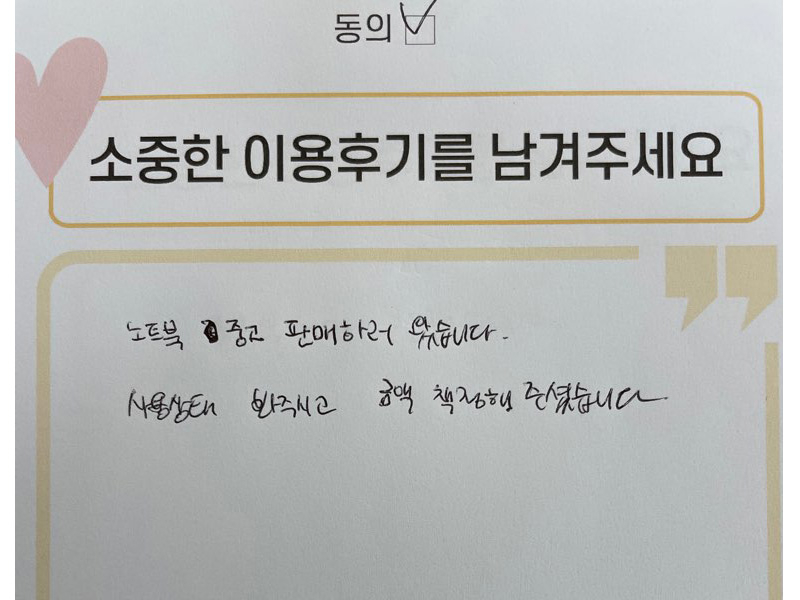 동의
소중한 이용후기를 남겨주세요
노트북 중고 판매하러 왔습니다.
사용상태 봐주시고 금액 책정해 주셨습니다.